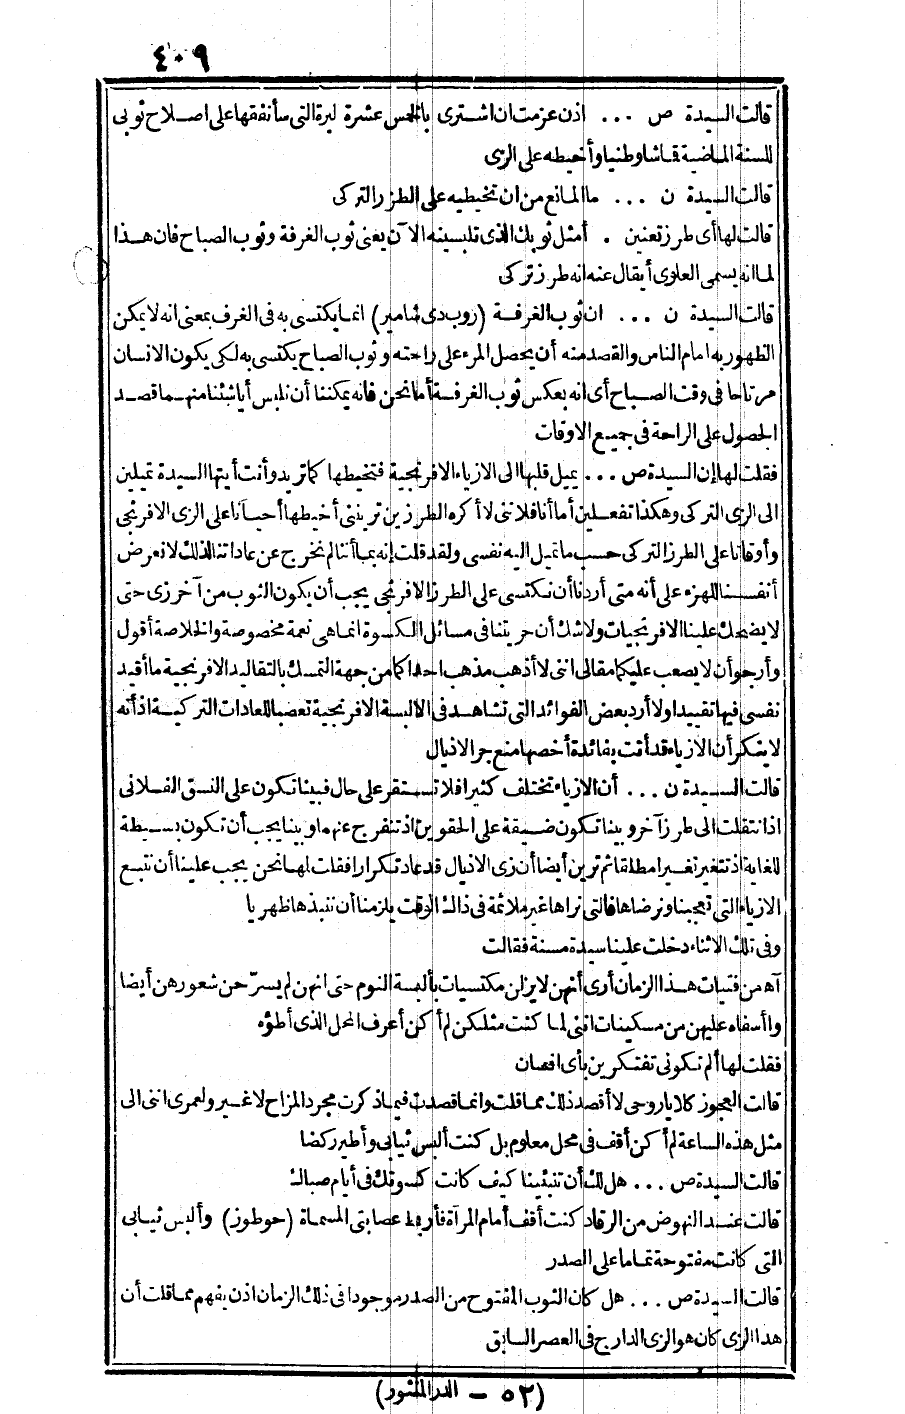 ٤٠٩
قالت السيدة ص ... اذن عزمت ان اشترى بالخمس عشرة ليرة التى سأنفقها على اصلاح ثوبى
للسنة الماضية قماشا وطنيا وأخيطه على الزى
قالت السيدة ن ... ما المانع من ان تخيطيه على الطرز التركى
قالت لها أى طرز تعنين . أمثل ثوبك الذى تلبسينه الآن يعنى ثوب الغرفة وثوب الصباح فان هذا
لما انه يسمى العلوى أيقال عنه انه طرز تركى
قالت السيدة ن ... ان ثوب الغرفة (روب دى شامبر) انما يكتسى به فى الغرف بمعنى انه لا يمكن
الظهور به امام الناس والقصد منه أن يحصل المرء على راحته وثوب الصباح يكتسى به لكى يكون الانسان
مرتاحا فى وقت الصباح أى انه بعكس ثوب الغرفة أما نحن فانه يمكننا أن نلبس أيا شئنا منهما قصد
الحصول على الراحة فى جميع الاوقات
فقلت لها إن السيدة ص ... يميل قلبها الى الازياء الافرنجية فتخيطها كما تريد وأنت أيتها السيدة تميلين
الى الزى التركى وهكذا تفعلين أما أنا فلاننى لا أكره الطرزين ترينى أخيطها أحيانا على الزى الافرنجى
وأوقاتا على الطرز التركى حسب ما تميل اليه نفسى ولقد قلت إنه بما أننا لم نخرج عن عاداتنا لذلك لا نعرض
أنفسنا للهزء على أنه متى أردنا أن نكتسى على الطرز الافرنجى يجب أن يكون الثوب من آخر زى حتى
لا يضحك علينا الافرنجيات ولا شك أن حريتنا فى مسائل الكسوة انما هى نعمة مخصوصة والخلاصة أقول
وأرجو أن لا يصعب عليكما مقالى اننى لا أذهب مذهب احداكما من جهة التمسك بالتقاليد الافرنجية ما أقيد
نفسى فيها تقييدا ولا أرد بعض الفوائد التى تشاهد فى الالبسة الافرنجية تعصبا للعادات التركية اذ أنه
لا ينكر أن الازياء قد أتت بفائدة أخصها منع جر الاذيال
قالت السيدة ن ... أن الازياء تختلف كثيرا فلا تستقر على حال فبينا تكون على النسق الفلانى
اذ انتقلت الى طرز آخر وبينا تكون ضيقة على الحقوين اذ تنفرج عنهما وبينا يجب أن تكون بسيطة
للغاية اذ تتغير تغيرا مطلقا ثم ترين أيضا أن زى الاذيال قد عاد تكرارا فقلت لها نحن يجب علينا أن نتبع
الازياء التى تعجبنا ونرضاها فالتى نراها غير ملائمة فى ذاك الوقت يلزمنا أن ننبذها ظهريا
وفى تلك الاثناء دخلت علينا سيدة مسنة فقالت
آه من فتيات هذا الزمان أرى أنهن لا يزلن مكتسيات بألبسة النوم حتى انهن لم يسرّحن شعورهن أيضا
وا أسفاه عليهن من مسكينات اننى لما كنت مثلكن لم أكن أعرف المحل الذى أطؤه
فقلت لها ألم تكونى تفتكرين بأى افعان
قالت العجوز كلا ياروحى لا أقصد ذلك مما قلت وانما قصدت فيما ذكرت مجرد المزاح لا غير ولعمرى اننى الى
مثل هذه الساعة لم أكن أقف فى محل معلوم بل كنت ألبس ثيابى وأطير ركضا
قالت السيدة ص ... هل لك أن تنبئينا كيف كانت كسوتك فى أيام صباك
قالت عند النهوض من الرقاد كنت أقف أمام المرآة فأربط عصابتى المسماة (حوطوز) وألبس ثيابى
التى كانت مفتوحة تماما على الصدر
قالت السيدة ص ... هل كان الثوب المفتوح من الصدر موجودا فى ذلك الزمان اذن يفهم مما قلت أن
هذا الزى كان هو الزى الدارج فى العصر السابق
(٥٢ - الدر المنثور)